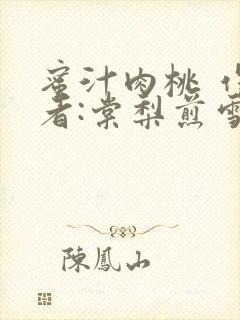 蜜汁肉桃 作
者:棠梨煎雪
陳鳳山